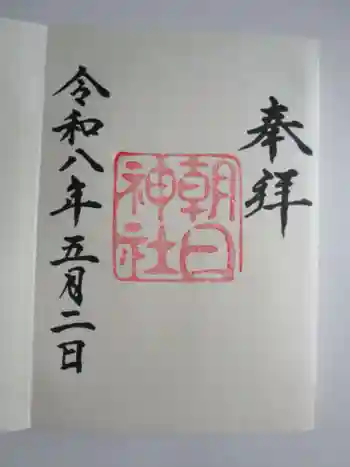 奉拝
朝日
神社
令和八年五月二日